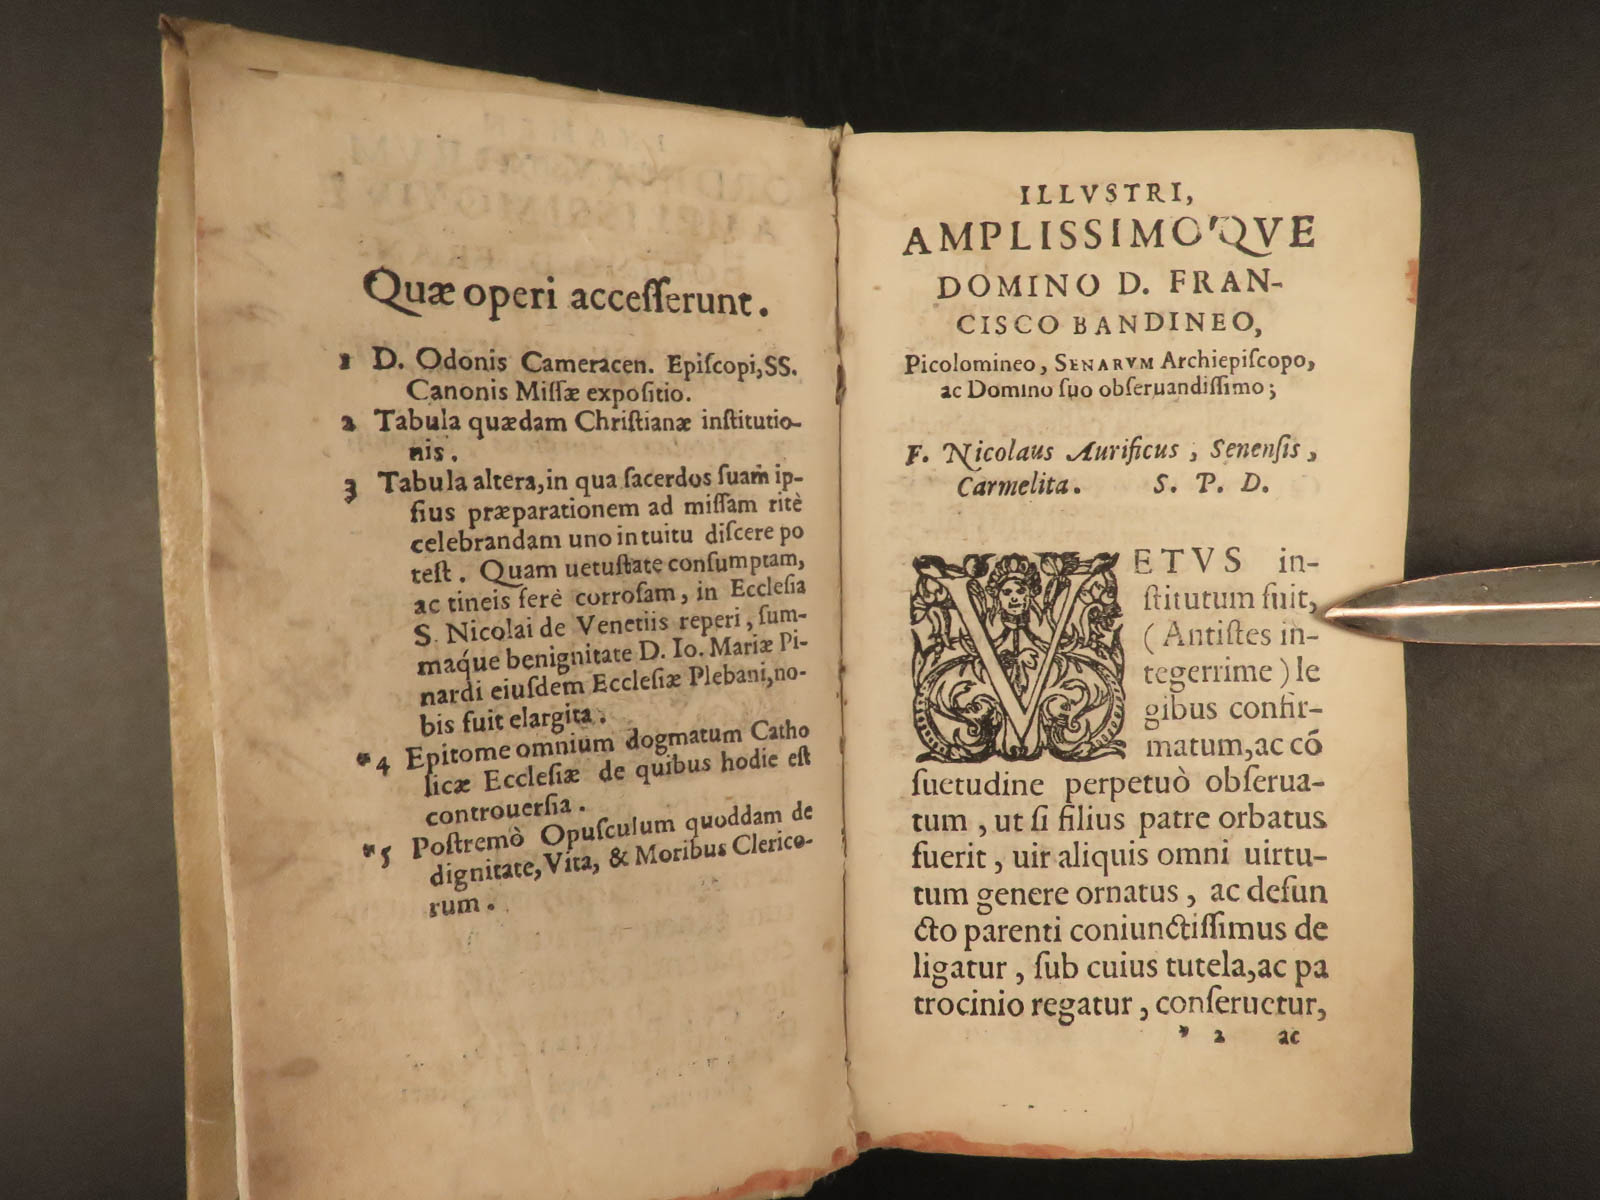 Quæ operi acceſſerunt.
1 D. Odonis Cameracen. Epiſcopi, SS.
Canonis Miſſæ expoſitio.
2 Tabula quædam Chriſtianæ inſtitutio-
nis.
3 Tabula altera, in qua ſacerdos ſuam ip-
ſius præparationem ad miſſam ritè
celebrandam uno intuitu diſcere po
teſt. Quam uetuſtate conſumptam,
ac tineis ferè corroſam, in Eccleſia
S. Nicolai de Venetiis reperi, ſum-
maq́ue benignitate D. Io. Mariæ Pi-
nardi eiuſdem Eccleſiæ Plebani, no-
bis fuit elargita.
* 4 Epitome omnium dogmatum Catho
licæ Eccleſiæ de quibus hodie eſt
controuerſia.
* 5 Poſtremò Opuſculum quoddam de
dignitate, Vita, & Moribus Clerico-
rum.
ILLVSTRI,
AMPLISSIMO'QVE
DOMINO D. FRAN-
CISCO BANDINEO,
Picolomineo, SENARVM Archiepiſcopo,
ac Domino ſuo obſeruandiſſimo;
F. Nicolaus Aurificus, Senenſis,
Carmelita. S. P. D.
VETVS in-
ſtitutum fuit,
(Antiſtes in-
tegerrime) le
gibus confir-
matum, ac cõ
ſuetudine perpetuò obſerua-
tum, ut ſi filius patre orbatus
fuerit, uir aliquis omni uirtu-
tum genere ornatus, ac defun
cto parenti coniunctiſſimus de
ligatur, ſub cuius tutela, ac pa
trocinio regatur, conſeruetur,
* 2 ac